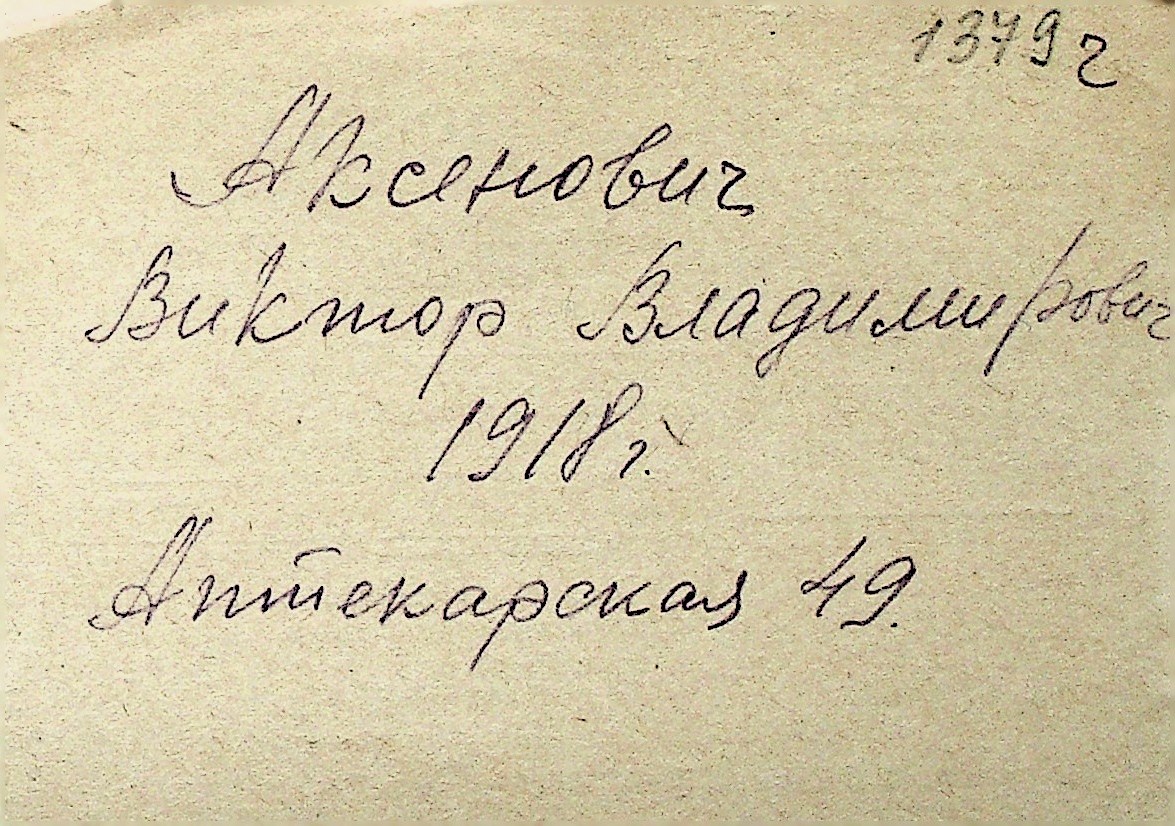 1379 г
Аксенович
Виктор Владимирович
1918 г.
Аптекарская 49.